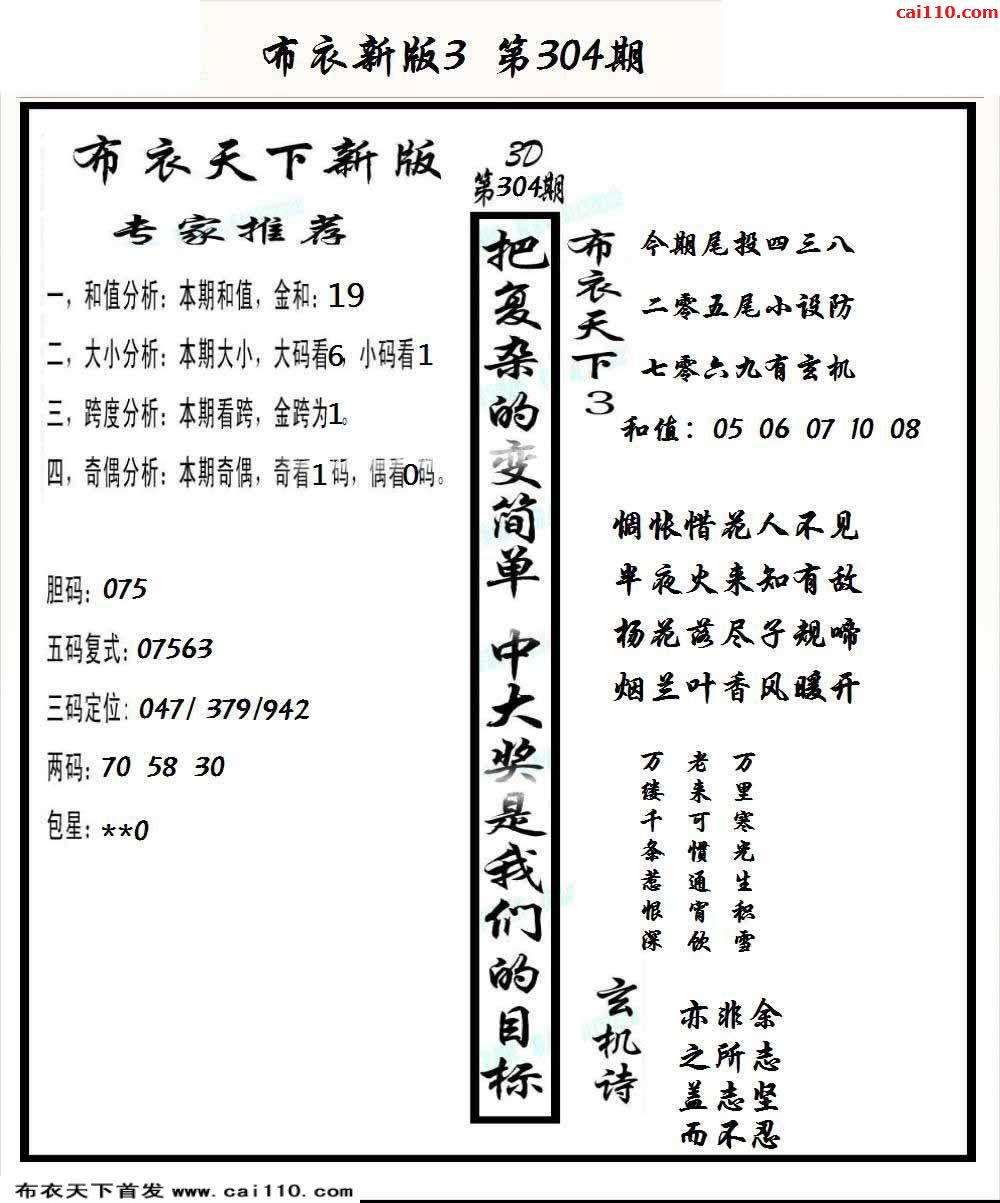 cai110.com
布衣新版3 第304期
布衣天下新版
专家推荐
一，和值分析：本期和值，金和：19
二，大小分析：本期大小，大码看6，小码看1
三，跨度分析：本期看跨，金跨为1。
四，奇偶分析：本期奇偶，奇看1码，偶看0码。
胆码：075
五码复式：07563
三码定位：047/ 379/942
两码：70 58 30
包星：**0
3D
第304期
把复杂的变简单 中大奖是我们的目标
布衣天下3
今期尾投四三八
二零五尾小设防
七零六九有玄机
和值： 05 06 07 10 08
惆怅惜花人不见
半夜火来知有敌
杨花落尽子规啼
烟兰叶香风暖开
万里寒光生积雪
老来可惯通宵饮
万缕千条惹恨深
玄机诗
亦非余
之所志
盖志坚
而不忍
布衣天下首发 www.cai110.com